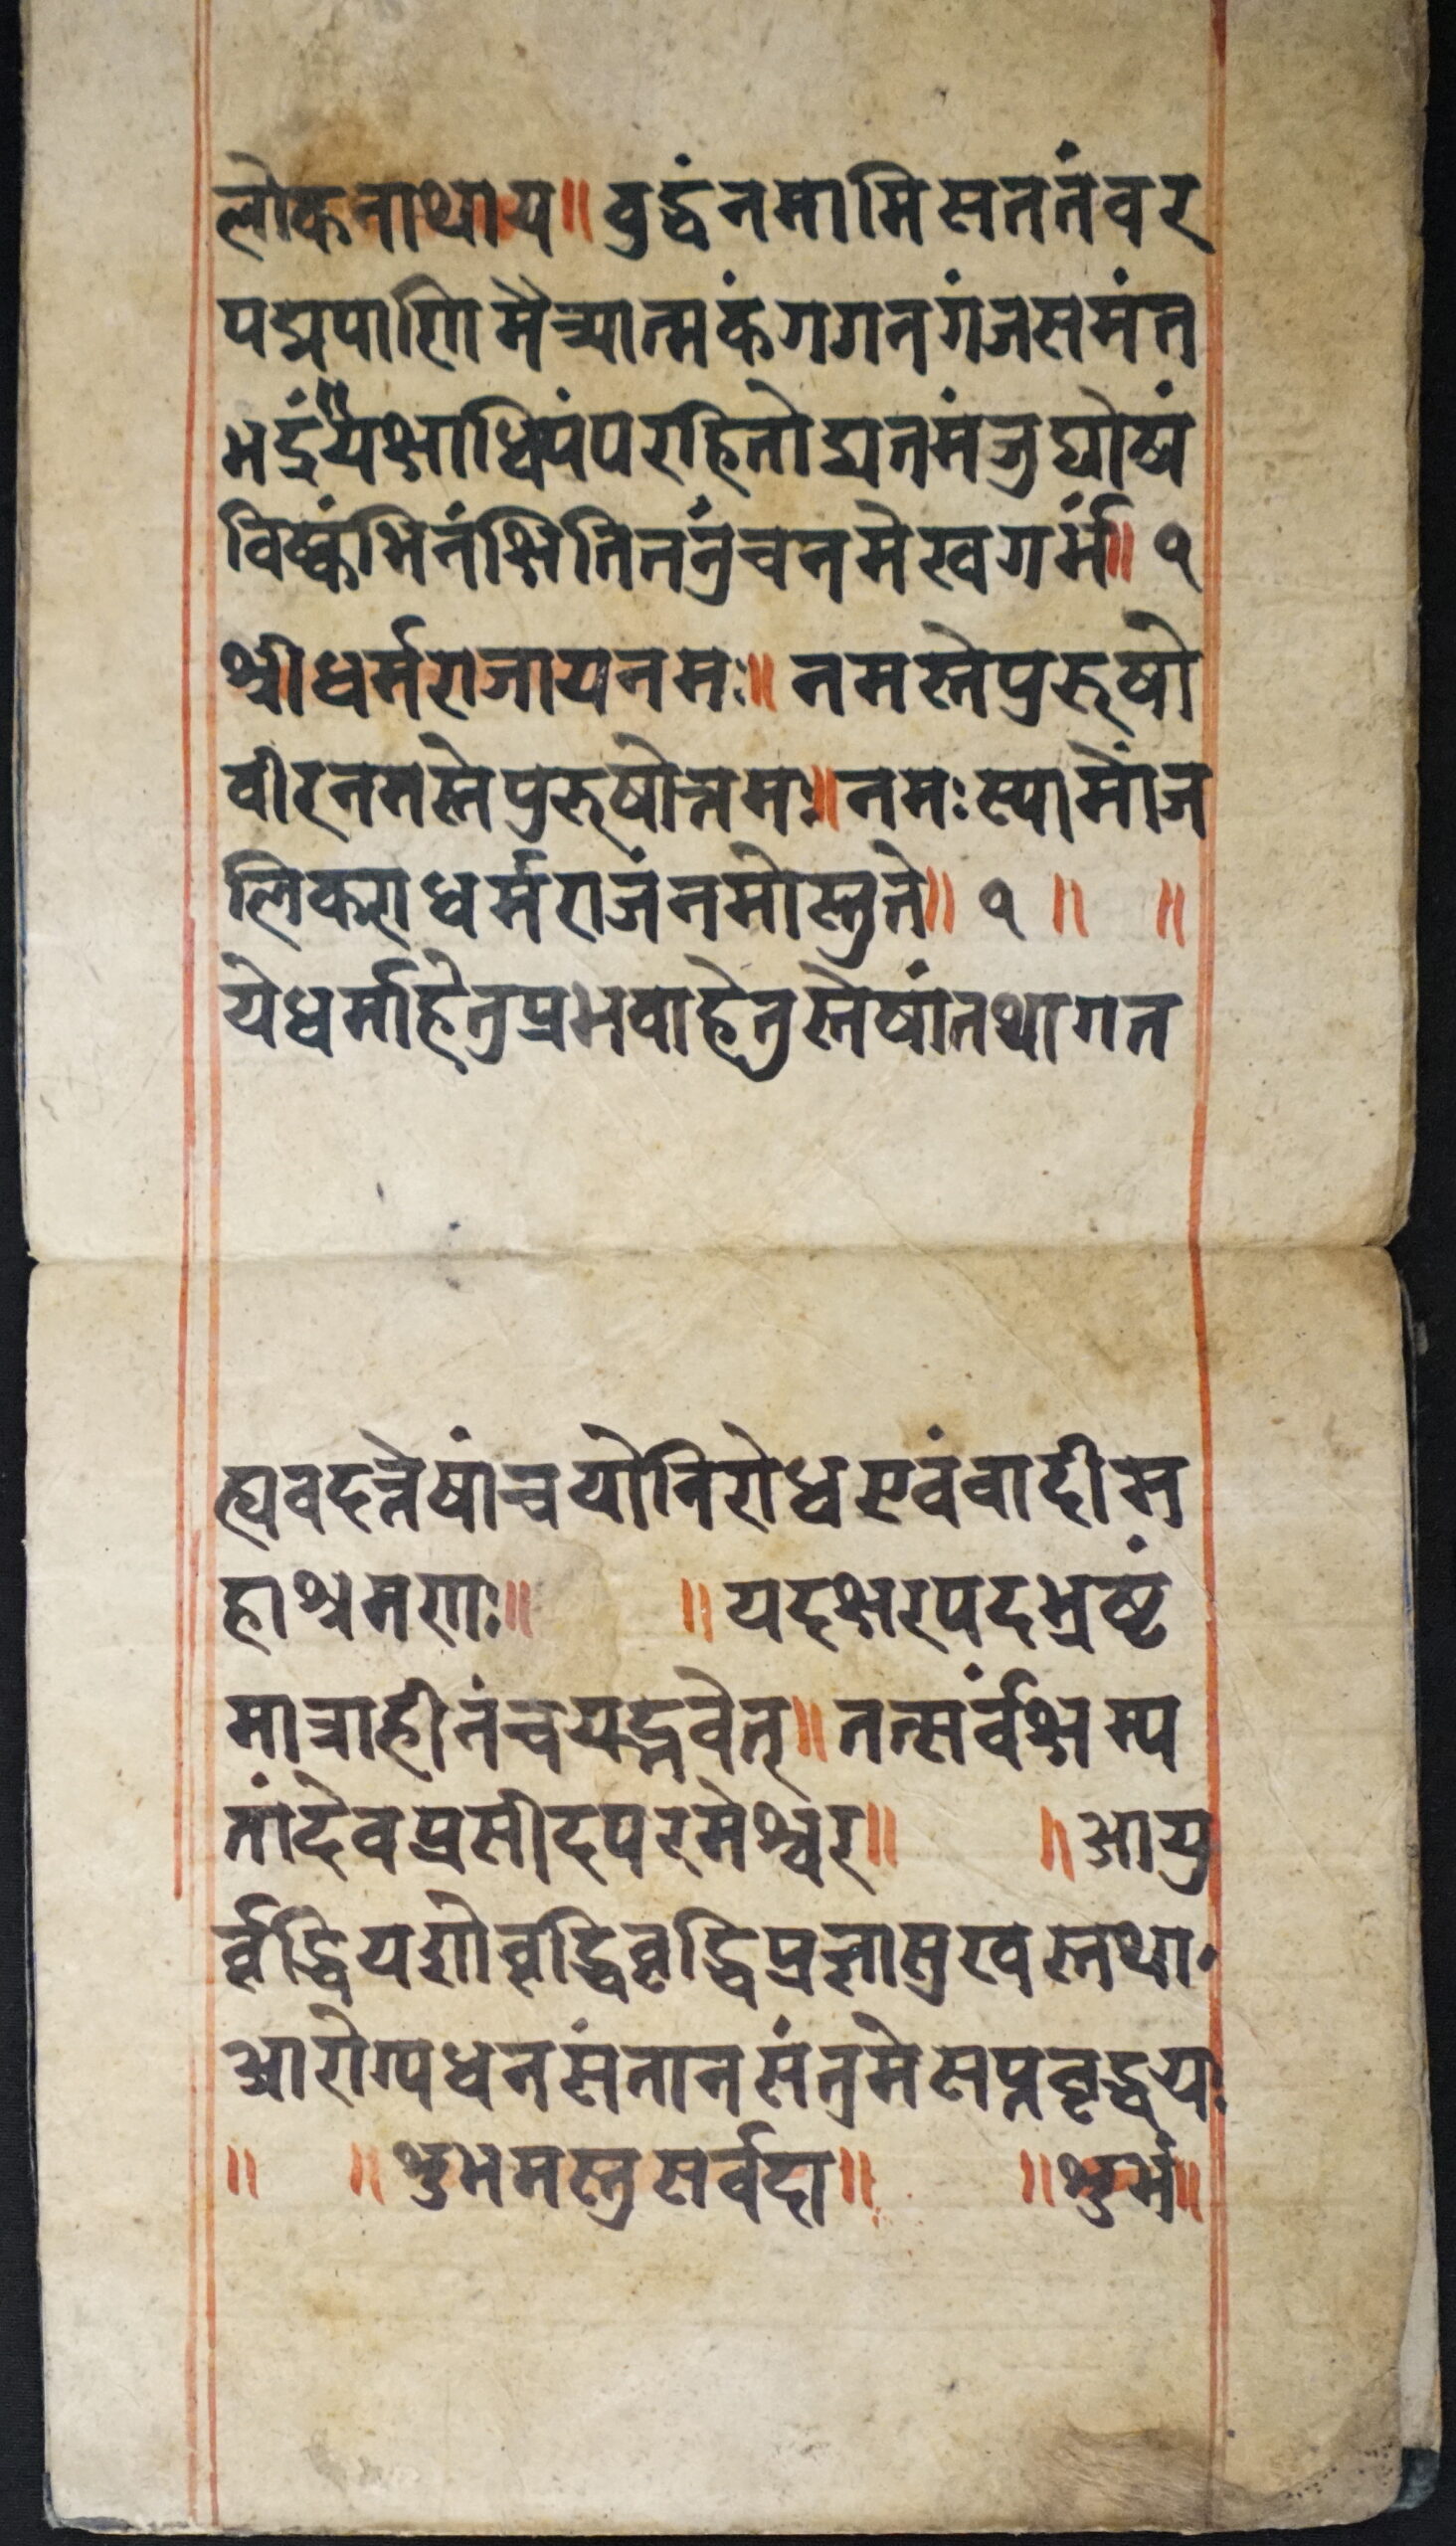 लोकनाथाय॥ वुद्धंनमामिसततंवर
पद्मपाणिमैत्र्यात्मकंगगनगंजसमंत
भद्रंयैक्षाधिपंपरहितोद्यतमंजुघोषं
विष्कंभिनंक्षितितनुंचनमेखगर्भं॥ १
श्रीधर्मराजायनमः॥ नमस्तेपुरूषो
वीरनमस्तेपुरूषोत्तमः॥ नमःस्यामांज
लिकराधर्मराजंनमोस्तुते॥ १ ॥ ॥
येधर्माहेतुप्रभवाहेतुस्तेषांतथागत
ह्यवदत्तेषांचयोनिरोधएवंवादीम
हाश्रमणः॥ ॥ यदक्षरपदभ्रष्टं
मात्राहीनंचयद्भवेत्॥ तत्सर्वंक्षम्य
तांदेवप्रसीदपरमेश्वर॥ ॥ आयु
र्वृद्धियशोवृद्धिवृद्धिप्रज्ञासुखस्तथा।
आरोग्यधनसंतानसंतुमेसप्तवृद्धयः
॥ ॥ शुभमस्तुसर्वदा॥ ॥ शुभं॥